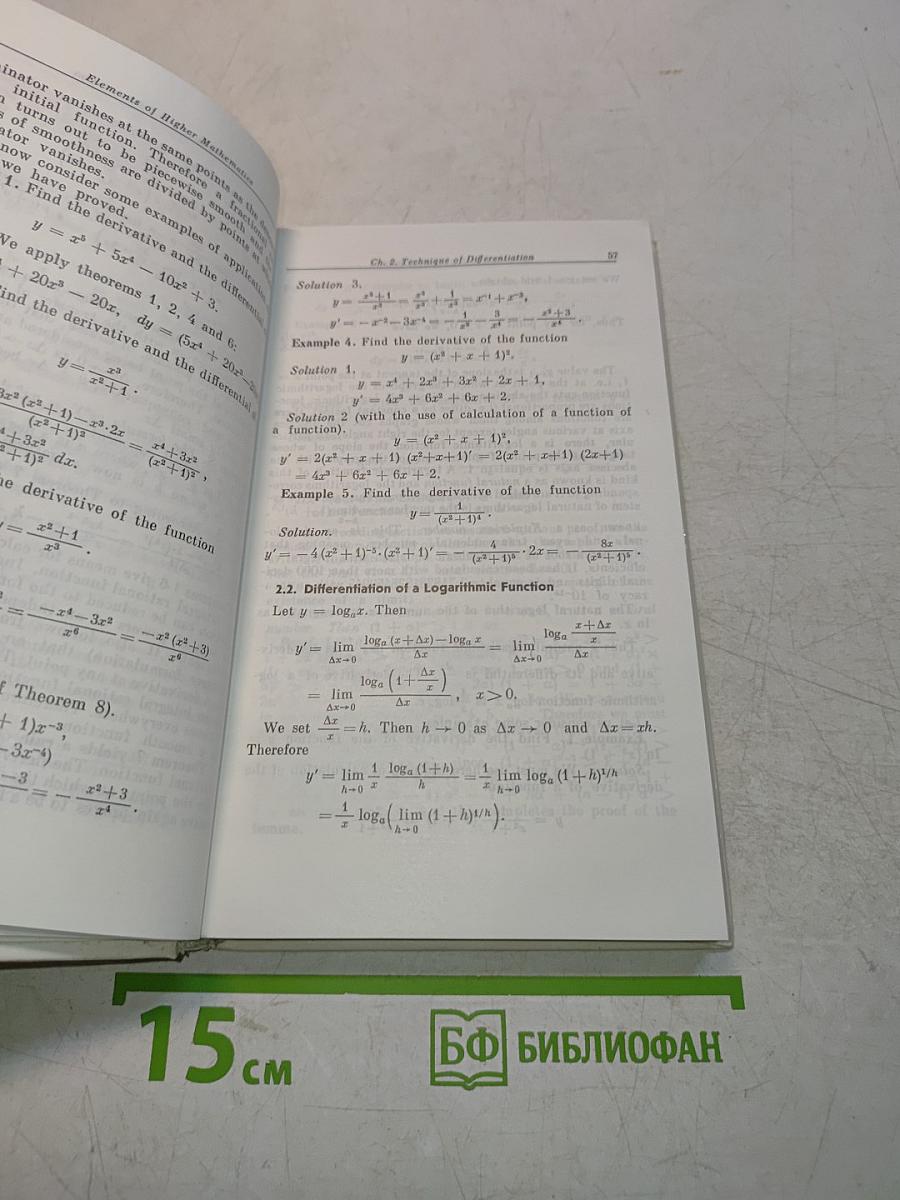 Elements of Higher Mathematics
inator vanishes at the same points as the
initial function. Therefore a fractional
turns out to be piecewise smooth and
of smoothness are divided by points at
ator vanishes.
now consider some examples of application
we have proved.
1. Find the derivative and the differential
y = x⁵ + 5x⁴ − 10x² + 3.
We apply theorems 1, 2, 4 and 6:
+ 20x³ − 20x, dy = (5x⁴ + 20x³ − 20x)
ind the derivative and the differential
y = x³/(x²+1).
3x²(x²+1)−x³·2x/(x²+1)² = x⁴+3x²/(x²+1)²,
⁴+3x²/(x²+1)² dx.
e derivative of the function
y = x²+1/x³.
= −x⁴−3x²/x⁶ = −x²(x²+3)/x⁶
f Theorem 8).
+ 1)x⁻³,
−3x⁻⁴)
−3 = − x²+3/x⁴.
Ch. 2. Technique of Differentiation 57
Solution 3.
y = x²+1/x³ = x²/x³ + 1/x³ = x⁻¹ + x⁻³,
y′ = −x⁻² − 3x⁻⁴ = − 1/x² − 3/x⁴ = − x²+3/x⁴.
Example 4. Find the derivative of the function
y = (x² + x + 1)².
Solution 1.
y = x⁴ + 2x³ + 3x² + 2x + 1,
y′ = 4x³ + 6x² + 6x + 2.
Solution 2 (with the use of calculation of a function of
a function).
y = (x² + x + 1)²,
y′ = 2(x² + x + 1) (x²+x+1)′ = 2(x² + x+1) (2x+1)
= 4x³ + 6x² + 6x + 2.
Example 5. Find the derivative of the function
y = 1/(x²+1)⁴.
Solution.
y′ = −4(x²+1)⁻⁵·(x²+1)′ = − 4/(x²+1)⁵ · 2x = − 8x/(x²+1)⁵.
2.2. Differentiation of a Logarithmic Function
Let y = logₐx. Then
y′ = lim Δx→0 logₐ(x+Δx)−logₐ x/Δx = lim Δx→0 logₐ (x+Δx/x)/Δx
= lim Δx→0 logₐ(1+Δx/x)/Δx, x>0.
We set Δx/x = h. Then h → 0 as Δx → 0 and Δx = xh.
Therefore
y′ = lim h→0 1/x logₐ(1+h)/h = 1/x lim h→0 logₐ(1+h)¹/ʰ
= 1/x logₐ( lim h→0 (1+h)¹/ʰ).
15 см
БФ БИБЛИОФАН